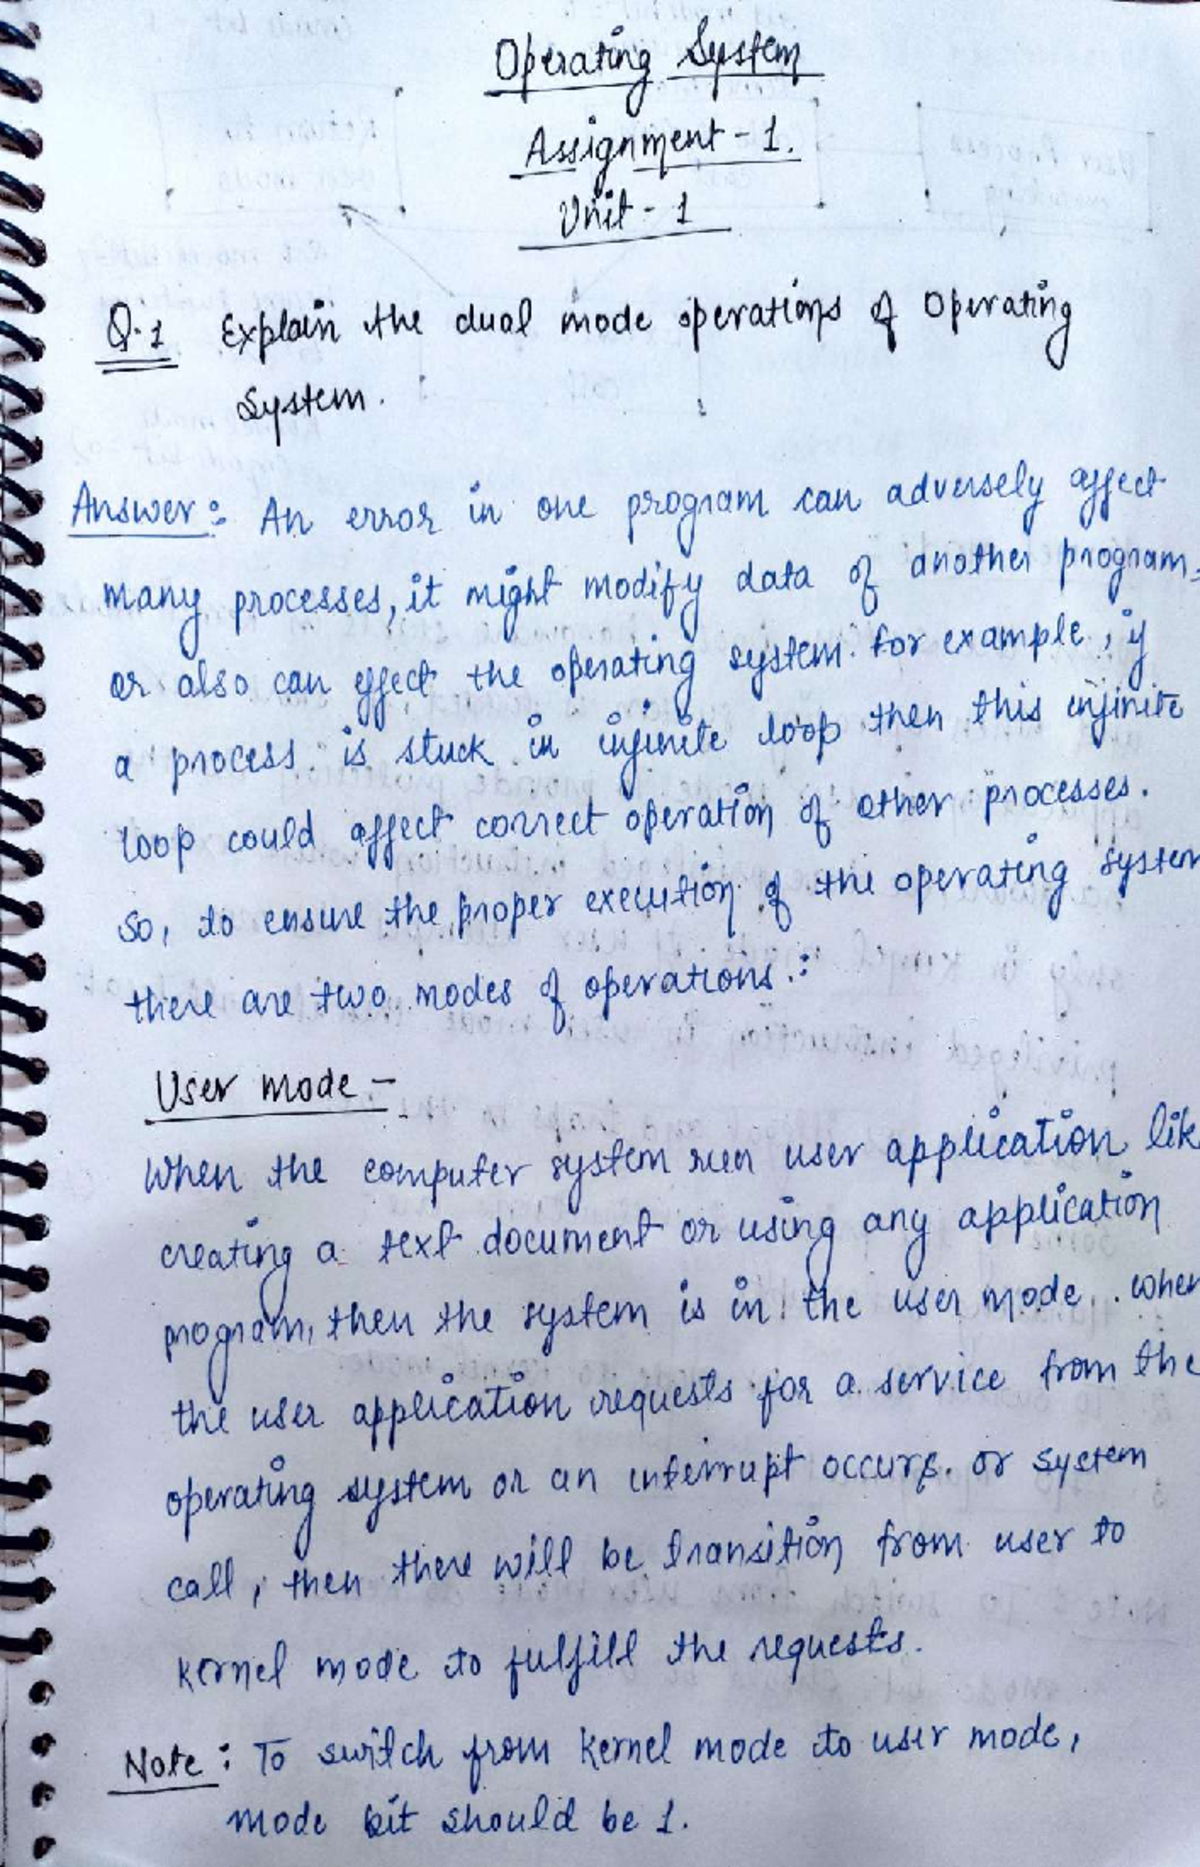 Operating System
Assignment - 1.
Unit - 1
Q.1 Explain the dual mode operations of Operating
System.
Answer: An error in one program can adversely affect
many processes, it might modify data of another program.
or also can effect the operating system. for example, if
a process is stuck in infinite loop then this infinite
loop could affect correct operation of other processes.
so, to ensure the proper execution of the operating system
there are two modes of operations.:
User mode -
When the computer system run user application lik
creating a text document or using any application
program, then the system is in the user mode. when
the user application requests for a service from the
operating system or an interrupt occurs. or system
call, then there will be transition from user to
kernel mode to fulfill the requests.
Note: To switch from kernel mode to user mode,
mode bit should be 1.